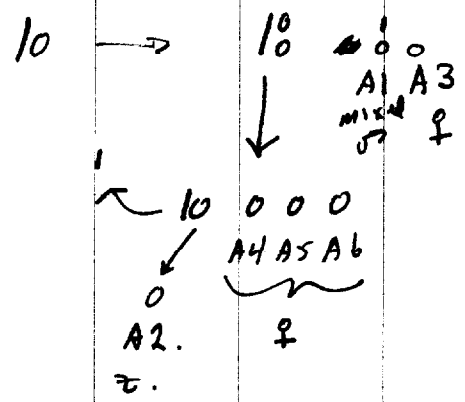 10 → 10 0 1 0 0
A1 A3
mixed ♀
1
10 0 0 0
A4 A5 A6
0 ♀
A2.